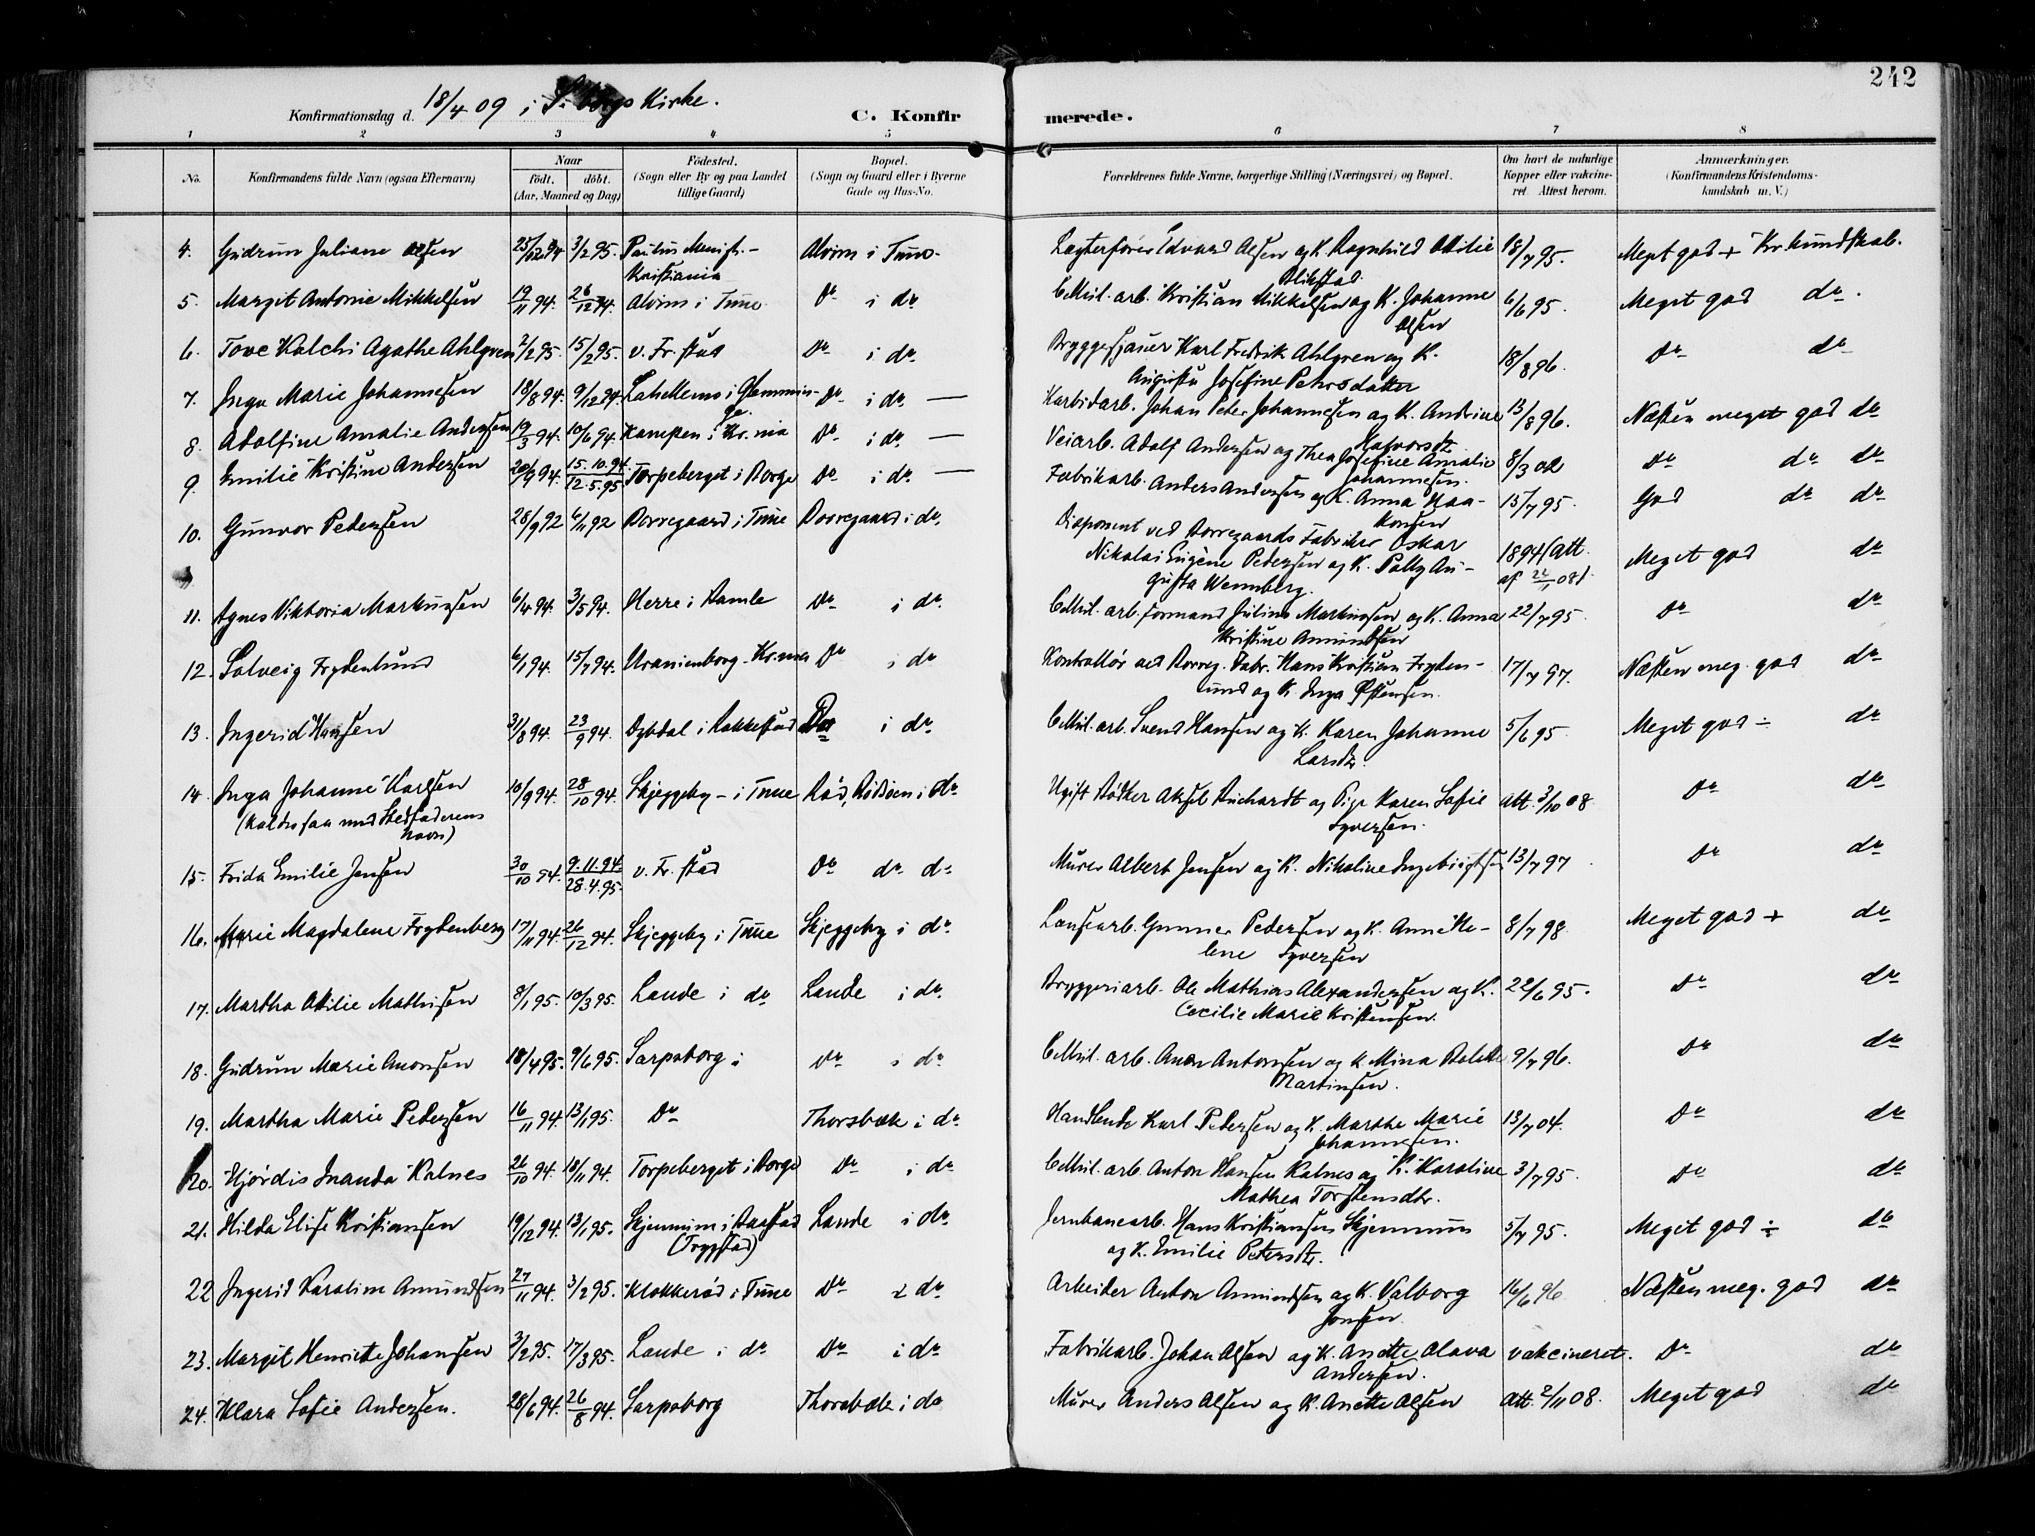 242
Konfirmationsdag d. 18/4 09 i S.borgs Kirke.
C. Konfirmerede.
1 2 3 4 5 6 7 8
No.
Konfirmandens fulde Navn (ogsaa Efternavn)
Naar
födt. döbt.
(Aar, Maaned og Dag)
Födested.
(Sogn eller By og paa Landet
tillige Gaard)
Bopæl.
(Sogn og Gaard eller i Byerne
Gade og Hus-No.
Forældrenes fulde Navne, borgerlige Stilling (Næringsvei) og Bopæl.
Om havt de naturlige
Kopper eller vakcine-
ret. Attest herom.
Anmærkninger.
(Konfirmandens Kristendoms-
kundskab m. V.)
4. Gudrun Juliane Olsen 25/12 94 3/2 95. Paulus Menigh.- Alvim i Tune. Edvard Olsen og K. Ragnhild Otilie 18/7 95. Meget god + Kr. kundskab.
Kristiania
5. Margit Antonie Mikkelsen 19/11 94. 26/12 94. Alvim i Tune. Do i do. Cellul. arb. Kristian Mikkelsen og K. Johanne 6/6 95. Meget god do.
Olsen
6. Tove Kalchi Agathe Ahlgren 2/2 95. 15/2 95. v. Fr.stad Do i do. Bryggesjauer Karl Fredrik Ahlgren og K. 18/8 96. Do do
Augusta Josefine Petersdatter
7. Inga Marie Johannesen 18/8 94. 9/12 94. i Glemmin- Do i do. — Karbidarb. Johan Peter Johannesen og K. Andrine 13/8 96. Næsten meget god do
ge. Halvorsdt.
8. Adolfine Amalie Andersen 19/3 94. 10/6 94. Kampen i Kr.nia Do i do. — Veiarb. Adolf Andersen og Thea Josefine Amalie 8/3 02 Do do do
Johannesen.
9. Emilie Kristine Andersen 20/9 94. 15.10.94. Torpeberget i Borge Do i do. — Fabrikarb. Anders Andersen og K. Anna Haa- 15/7 95. God do do
12.5.95 konsen
10. Gunvor Pedersen 28/9 92 6/11 92 Borregaard i Tune Borregaard i do. Disponent ved Borregaards Fabriker Oskar
Nikolai Eugène Pedersen og K. Polly Au- 1894 (Att. Meget god do
gusta Wennberg. af 22/1 08).
11. Agnes Viktoria Markussen 6/4 94. 3/5 94. Herre i Bamle Do i do. Cellul. arb. formand Julius Markussen og K. Anna 22/7 95. Do do
Kristine Amundsen
12. Solveig Frydenlund 6/1 94. 15/7 94. Uranienborg - Kr.nia Do i do Kontrollør ved Borreg. Fabr. Hans Kristian Fryden- 17/7 97. Næsten meg. god do
lund og K. Inga Østensen.
13. Ingerid Hansen 31/8 94. 23/9 94. i Rakkestad Do i do. Cellul. arb. Svend Hansen og K. Karen Johanne 5/6 95 Meget god ÷ do
Larsdt.
14. Inga Johanne Karlsen 10/9 94. 28/10 94. Skjeggeby - i Tune Rød, i do Ugift Aksel Richardt og Pige Karen Sofie Att. 3/10 08. Do do
(kaldes saa med Stedfaderens Syversen.
Navn)
15. Frida Emilie Jensen 30/10 94. 9.11.94. v. Fr.stad Do do. do Murer Albert Jensen og K. Nikoline Ingebrigtsen 13/7 97 Do do
28.4.95.
16. Marie Magdalene Frydenberg 17/11 94. 26/12 94. Skjeggeby i Tune Skjeggeby i do. Gunner Pedersen og K. Anne He- 8/7 98. Meget god + do
lene Syversen
17. Martha Otilie Mathisen 8/1 95. 10/3 95. Lande i do Lande i do. Bryggeriarb. Ole Mathias Alexandersen og K. 22/6 95. Do do
Cecilie Marie Kristensen.
18. Gudrun Marie Anonsen 18/4 95. 9/6 95. Sarpsborg i Do i do. Cellul. arb. Antonsen og K Mina 9/7 96. Do do
Martinsen.
19. Martha Marie Pedersen 16/11 94. 13/1 95. Do Thorsbæk i do. Handlende Karl Pedersen og K. Marthe Marie 13/7 04. Do do
Johannesen.
20. Hjørdis Inanda Kalnes 26/10 94. 18/11 94. Torpeberget i Borge Do i do Cellul. arb. Anton Hansen Kalnes og K. Karoline 3/7 95. Do do
Mathea Torstensdtr.
21. Hilda Elise Kristiansen 19/12 94. 13/1 95. Skjennum i Baastad Lande i do. Jernbanearb. Hans Kristiansen Skjennum 5/7 95. Meget god ÷ do
(Trygstad) og K. Emilie Petersdt.
22 Ingerid Karoline Amundsen 27/11 94. 3/2 95. Klokkerød i Tune Do i do Arbeider Anton Amundsen og K. Valborg 16/6 96 Næsten meg. god do
Jonsen.
23. Margit Henriette Johansen 3/2 95. 17/3 95. Lande i do Do i do Fabrikarb. Johan Olsen og K. Anette Olava vakcineret. Do do
Andersen.
24. Klara Sofie Andersen. 28/6 94. 26/8 94. Sarpsborg Thorsbæk i do Murer Anders Olsen og K. Anette Olsen Att. 2/11 08. Meget god do